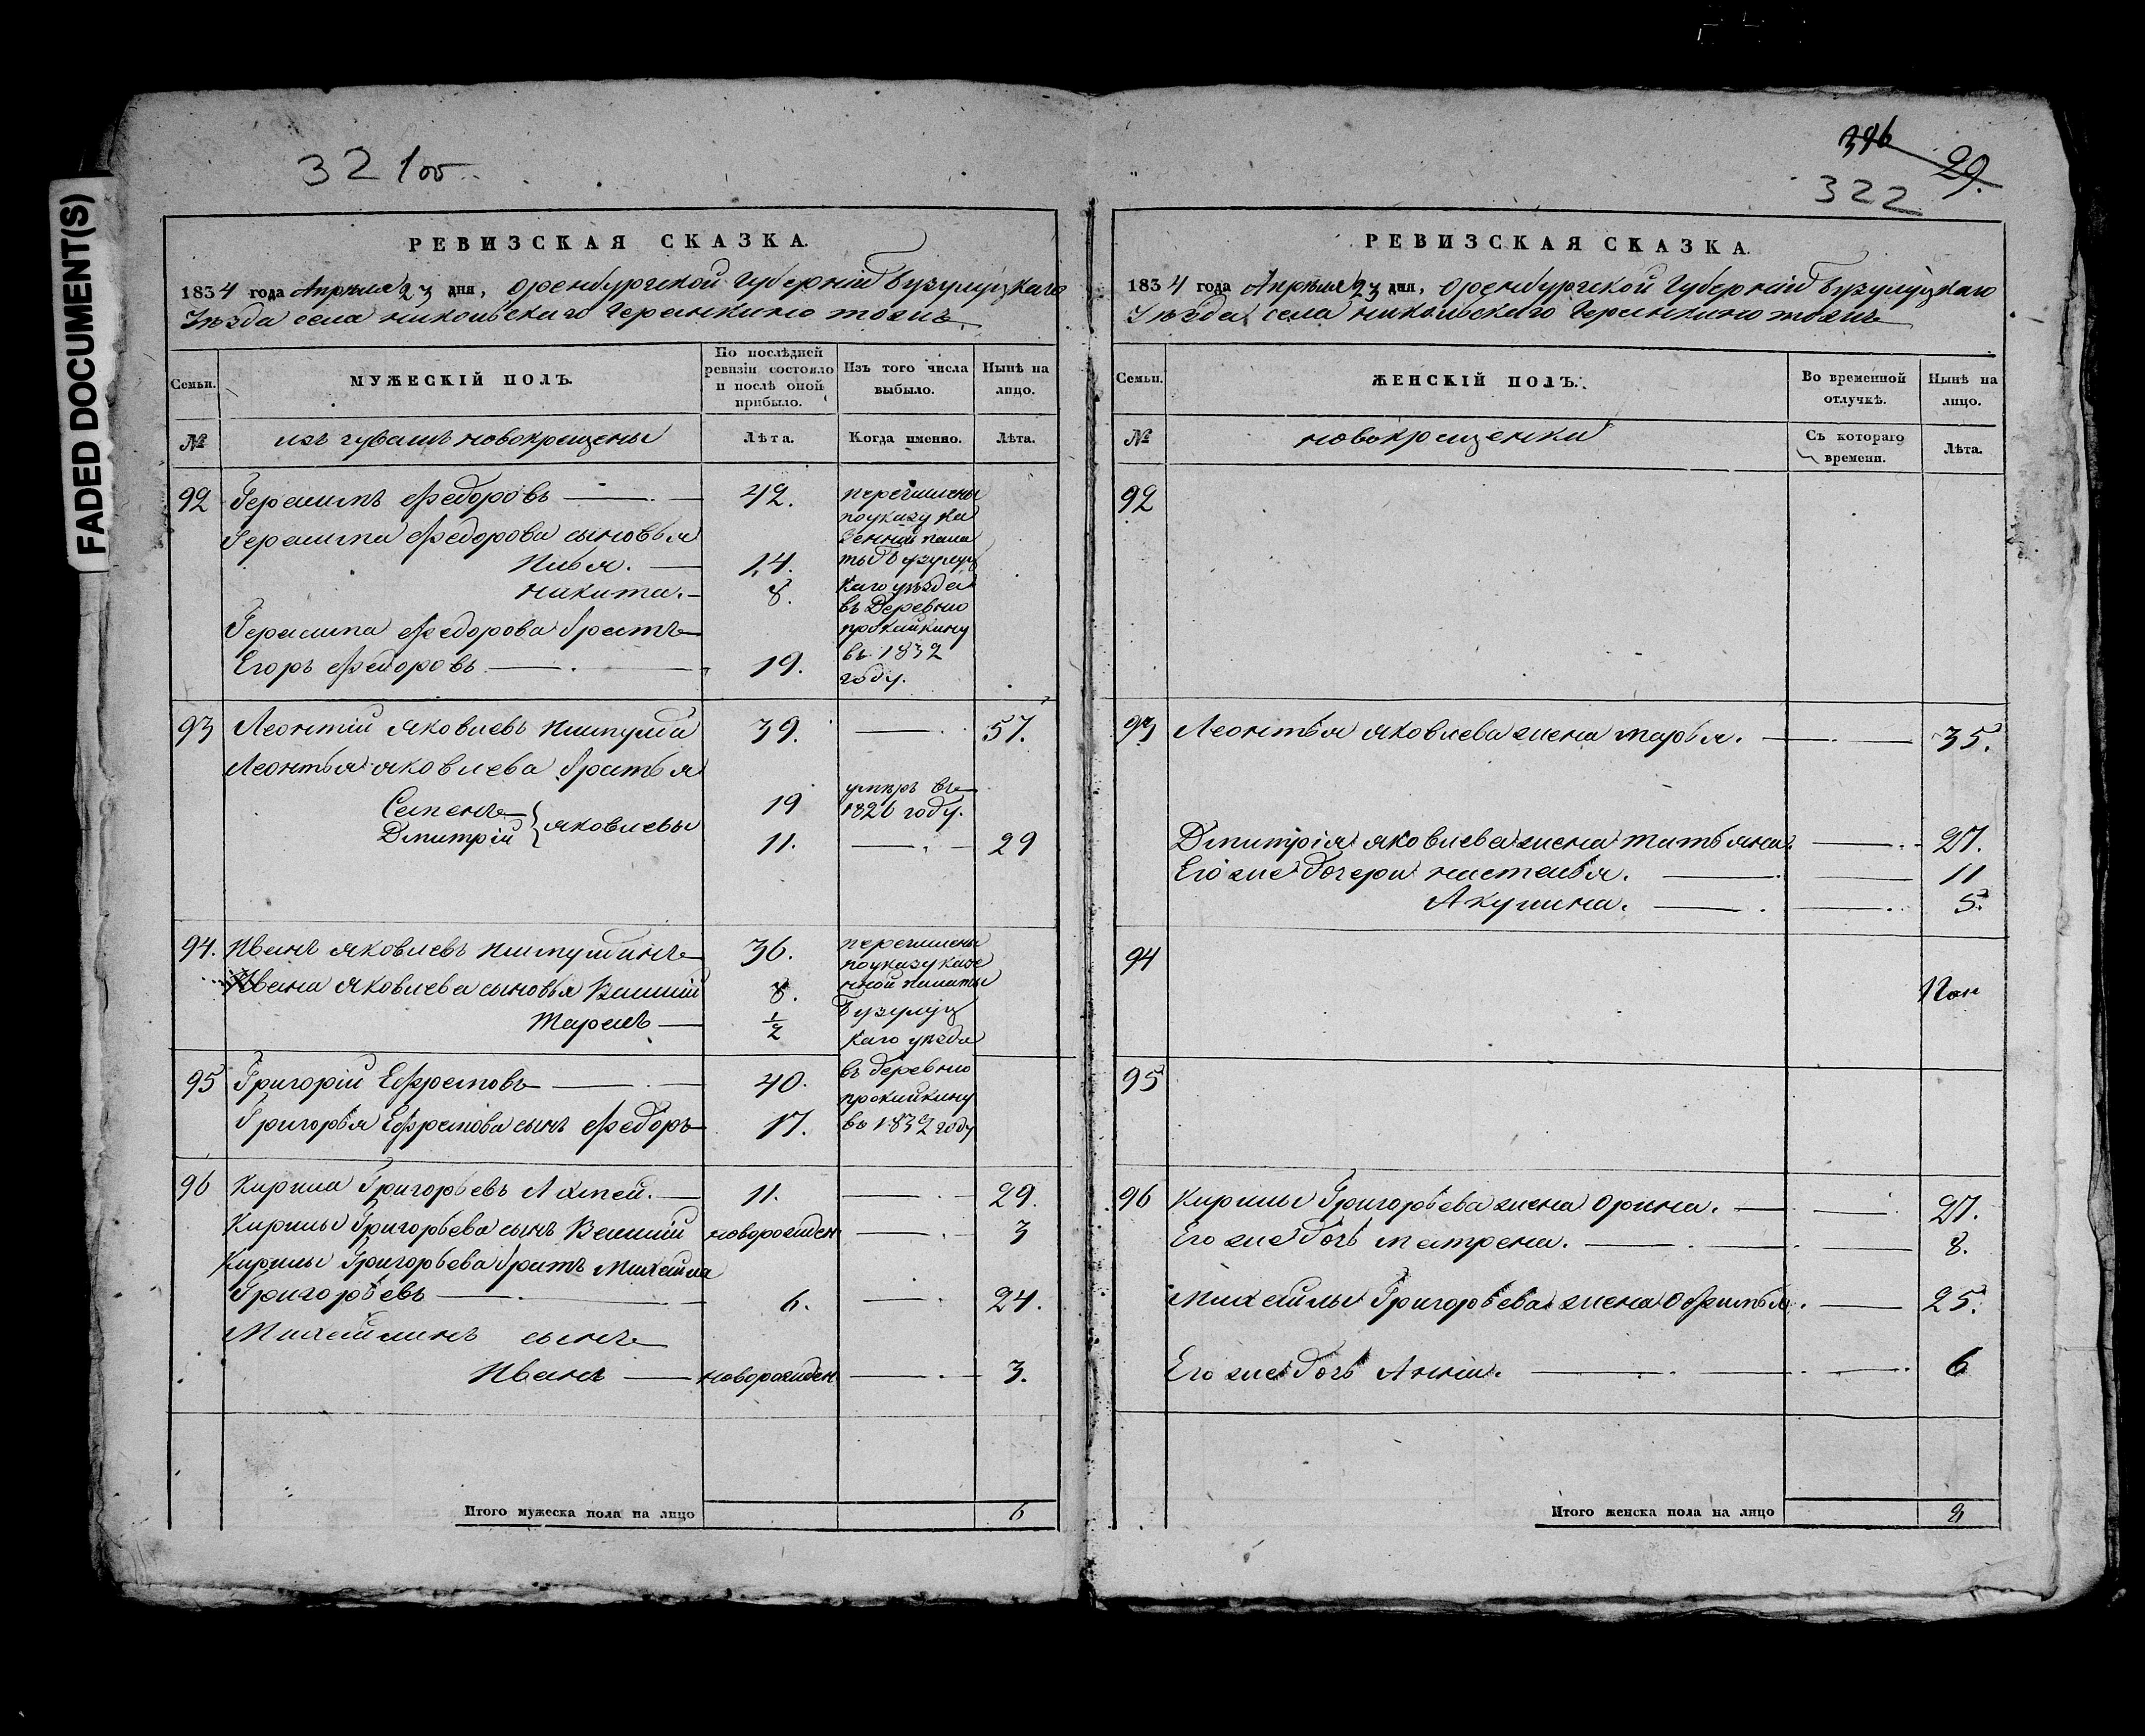 FADED DOCUMENT(S)
321об
РЕВИЗСКАЯ СКАЗКА.
1834 года Апреля 23 дня, Оренбургской Губернии Бузулуцкаго
Уезда села никольскаго Черемкино тожъ
Семьи.
МУЖЕСКІЙ ПОЛЪ.
По послѣдней ревизіи состояло и послѣ оной прибыло.
Изъ того числа выбыло.
Нынѣ на лицо.
№
изъ чувашъ новокрещены
Лѣта.
Когда именно.
Лѣта.
92 Герасимъ Федоровъ 42. перечислены
по указу ка
Герасима Федорова сыновья зенной пала
Илья. 14. ты Бузулуц
никита. 8. каго уезда
въ Деревню
Герасима Федорова братъ прокайкину
Егоръ Федоровъ 19. въ 1832
году.
93 Леонтій яковлевъ 39. 57.
Леонтья яковлева братья
Семенъ яковлевы 19 умеръ въ 1826 году.
Дмитрій 11. 29
94. Иванъ яковлевъ 36. перечислены
по указу казе
Ивана яковлева сыновья Василій 8. нной палаты
Тарасъ 1/2 Бузулуц
каго уезда
95 Григорій Ефремовъ 40. въ деревню
прокайкину
Григорья Ефремова сынъ Федоръ 17. въ 1832 году
96 Кирила Григорьевъ 11. 29.
Кирилы Григорьева сынъ Василій новорожден 3
Кирилы Григорьева братъ Михайла
Григорьевъ 6. 24.
Михайлинъ сынъ
Иванъ новорожден 3.
Итого мужеска пола на лицо 6
396
29.
322
РЕВИЗСКАЯ СКАЗКА.
1834 года Апреля 23 дня, Оренбургской Губернии Бузулуцкаго
Уезда села никольскаго Черемкино тожъ
Семьи.
ЖЕНСКІЙ ПОЛЪ.
Во временной отлучкѣ.
Нынѣ на лицо.
№
новокрещенки
Съ котораго времени.
Лѣта.
92
93 Леонтья яковлева жена марья. 35.
Дмитрія яковлева жена татьяна. 27.
Его же дочери настасья. 11
Акулина. 5.
94
95
96 Кирилы Григорьева жена орина. 27.
Его же дочь матрена. 8.
Михайлы Григорьева жена офимья. 25.
Его же дочь Анна. 6
Итого женска пола на лицо 8